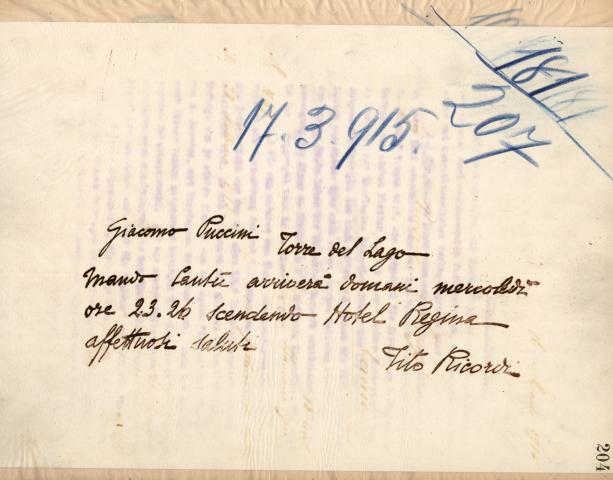 181
207
17.3.915.
Giacomo Puccini Torre del Lago
Mando Cantù arriverà domani mercoledì
ore 23.26 scendendo Hotel Regina
affettuosi saluti Tito Ricordi
204